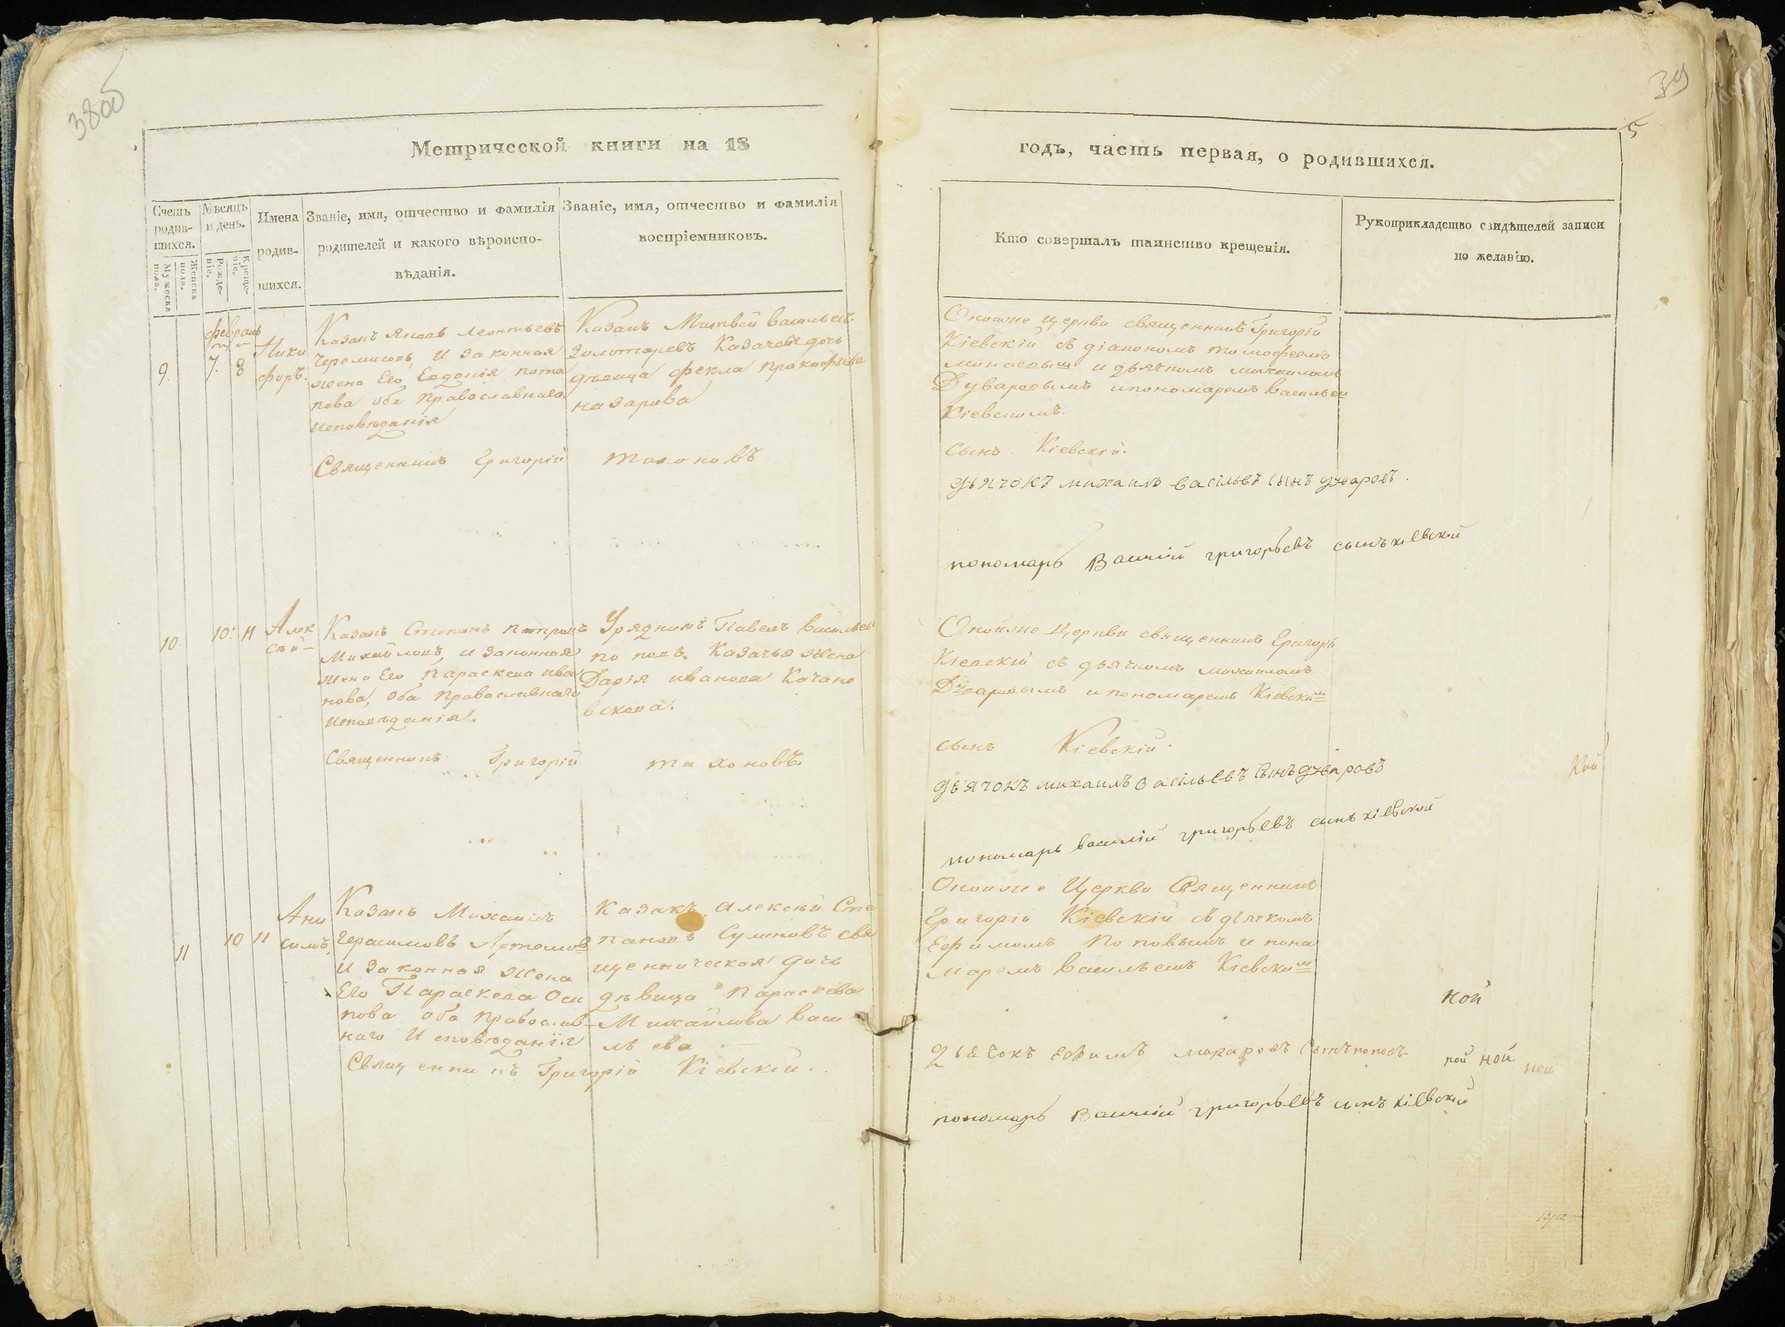 38об
39
5
Метрической книги на 18
годъ, часть первая, о родившихся.
Счетъ родив-шихся.
Мужеска пола.
Женска пола.
Мѣсяцъ и день.
Рожде-ніе.
Креще-ніе.
Имена родив-шихся.
Званіе, имя, отчество и фамилія
родителей и какого вѣроиспо-
вѣданія.
Званіе, имя, отчество и фамилія
воспріемниковъ.
Кто совершалъ таинство крещенія.
Рукоприкладство свидѣтелей записи
по желанію.
февраль
9. 7. 8
Ники
форъ.
Казакъ Яковъ Леонтьевъ
Черемисовъ, и законная
жена Его, Евдокія Пота
пова оба Православнаго
исповѣданія
Казакъ Матвей Васильевъ
Золотаревъ Казачья дочь
дѣвица Фекла Прокофьева
Назарова
Священникъ Григорій
Ономже Церкви священникъ Григорій
Кіевскій съ діакономъ Тимофеемъ
и дьячкомъ Михаиломъ
и пономаремъ Васильем
Кіевскимъ.
сынъ Кіевскій.
дьячокъ михаилъ васільевъ сынъ
пономарь Василій григорьевъ сынъ кіевской
10 10. 11
Алек
сѣй
Казакъ Степанъ Петровъ
Михайловъ, и законная
жена Его Параскева Ива
нова, Оба Православнаго
исповѣданія.
Урядникъ Павелъ Васильевъ
Поповъ. Казачья жена
Дарія Иванова Качано
вскова.
Священникъ Григорій
Ономже Церкви священникъ Григорій
Кіевскій съ дьячкомъ Михаиломъ
и пономаремъ Кіевским
сынъ Кіевскій.
дьячокъ михаилъ васільевъ сынъ
пономарь василій григорьевъ сынъ кіевской
11 10 11
Ани
симъ.
Казакъ Михаилъ
Герасимовъ Артемов
И законная Жена
Его Параскева Оси
пова оба Православ
наго Исповѣданія
Казакъ Алексѣй Сте
пановъ Сумсковъ свя
щенническая дочь
дѣвица Параскева
Михайлова Васи
льева
Священникъ Григорій Кіевскій.
Ономже Церкви Священникъ
Григорій Кіевскій съ дьячкомъ
Ефимомъ Поповымъ и поно
маремъ Васильемъ Кіевским
ной
дьячокъ Ефимъ макаровъ сынъ поповъ
ной ной
пономарь Василій григорьевъ сынъ кіевской